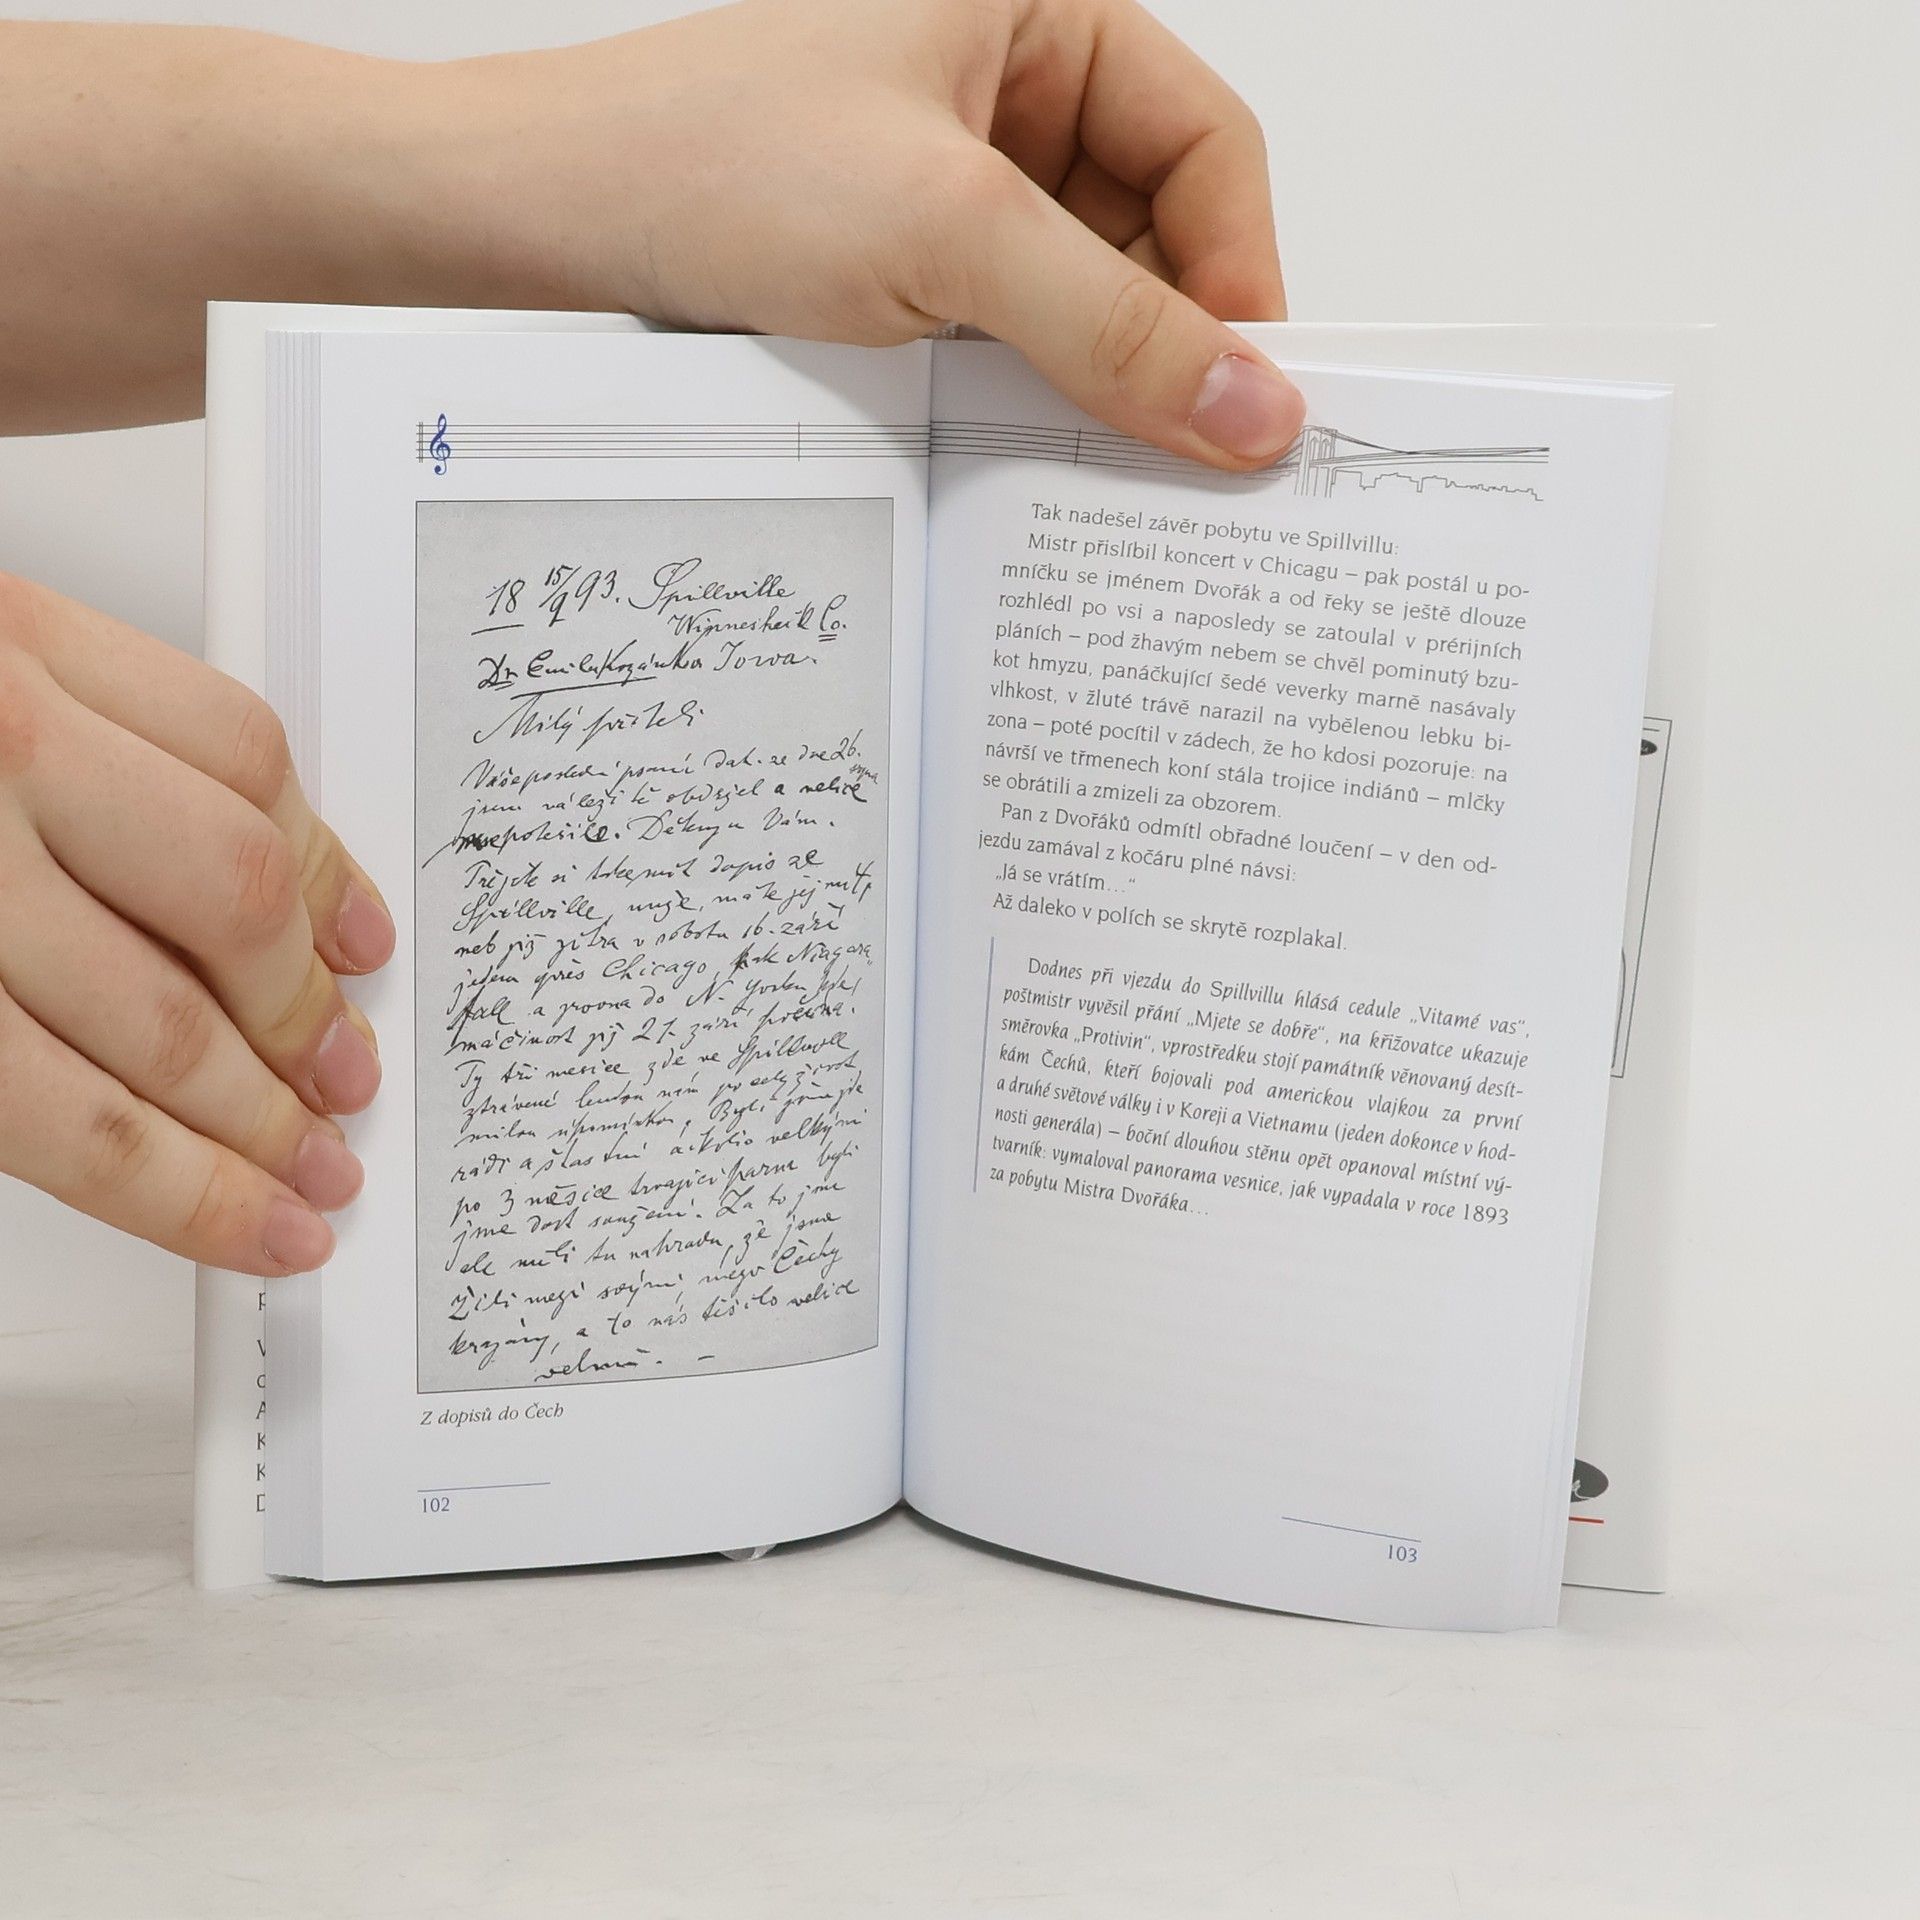 18 15/9 93. Spillville
Co.
Dr Emilu Kozánkovi Iowa.
Milý příteli
Vaše poslední psaní dat. ze dne 26.
srpna
jsem náležitě obdržel a velice
mne potěšilo. Děkuji Vám.
dopis ze
Spillville,
neb již zítra v sobotu 16. září
jedem přes Chicago, Niagara
fall a rovnou do N. Yorku
21. září
Ty tři mesíce zde ve Spillville
ztrávené budou nám po celý život
milou upomínkou. Byli jsme zde
rádi a šťastni ačkoliv velkými
po 3 měsíce trvající parna byli
jme dost souženi. Za to jme
ale měli tu nahradu, že jsme
žili mezi svými, mezi Čechy
krajany, a to nás těšilo velice
velmi. –
Z dopisů do Čech
102
Tak nadešel závěr pobytu ve Spillvillu:
Mistr přislíbil koncert v Chicagu – pak postál u po-
mníčku se jménem Dvořák a od řeky se ještě dlouze
rozhlédl po vsi a naposledy se zatoulal v prérijních
pláních – pod žhavým nebem se chvěl pominutý bzu-
kot hmyzu, panáčkující šedé veverky marně nasávaly
vlhkost, v žluté trávě narazil na vybělenou lebku bi-
zona – poté pocítil v zádech, že ho kdosi pozoruje: na
návrší ve třmenech koní stála trojice indiánů – mlčky
se obrátili a zmizeli za obzorem.
Pan z Dvořáků odmítl obřadné loučení – v den od-
jezdu zamával z kočáru plné návsi:
„Já se vrátím…“
Až daleko v polích se skrytě rozplakal.
Dodnes při vjezdu do Spillvillu hlásá cedule „Vitamé vas“,
poštmistr vyvěsil přání „Mjete se dobře“, na křižovatce ukazuje
směrovka „Protivin“, vprostředku stojí památník věnovaný desít-
kám Čechů, kteří bojovali pod americkou vlajkou za první
a druhé světové války i v Koreji a Vietnamu (jeden dokonce v hod-
nosti generála) – boční dlouhou stěnu opět opanoval místní vý-
tvarník: vymaloval panorama vesnice, jak vypadala v roce 1893
za pobytu Mistra Dvořáka…
103